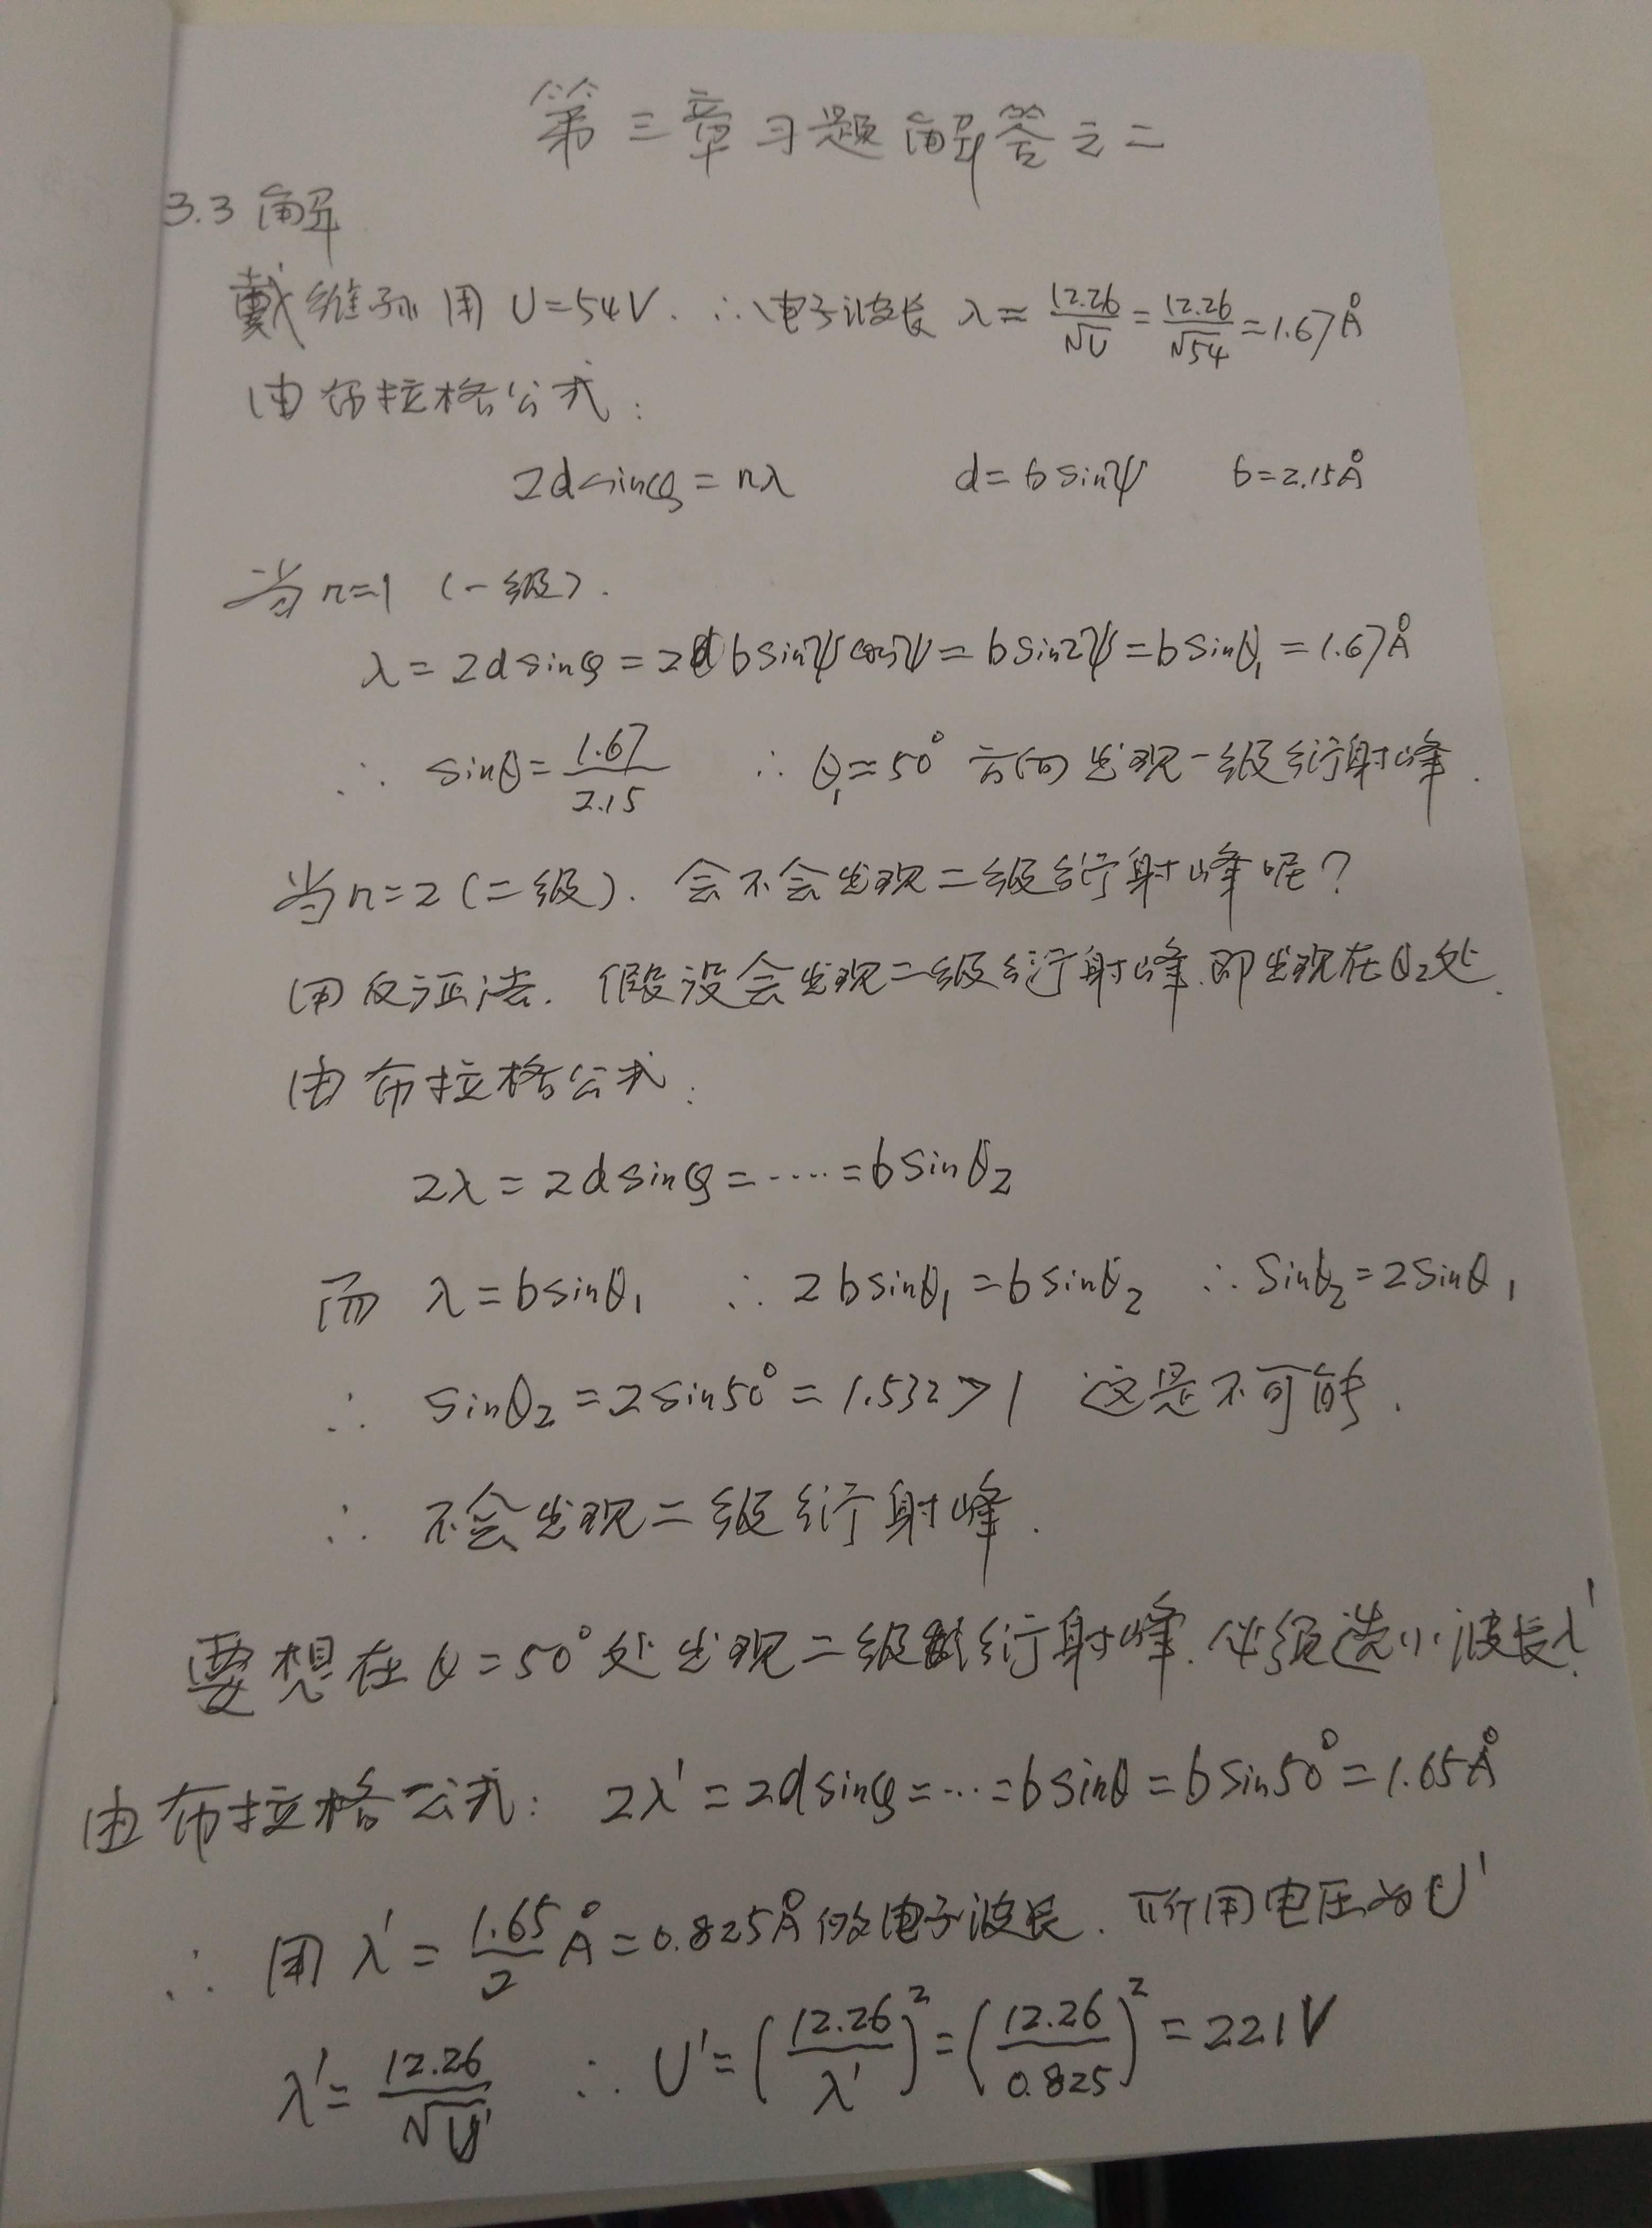 第三章习题解答之二
3.3 解
戴维孙用 U=54V. ∴电子波长 λ≈12.26/√U=12.26/√54=1.67Å
由布拉格公式:
2dsinφ=nλ d=bsinψ b=2.15Å
当n=1 (一级).
λ=2dsinφ=2bsinψcosψ=bsin2ψ=bsinθ₁=1.67Å
∴ sinθ=1.67/2.15 ∴ θ₁≈50° 方向出现一级衍射峰.
当n=2(二级). 会不会出现二级衍射峰呢?
用反证法. 假设会出现二级衍射峰.即出现在θ₂处.
由布拉格公式:
2λ=2dsinφ=……=bsinθ₂
而 λ=bsinθ₁ ∴ 2bsinθ₁=bsinθ₂ ∴ sinθ₂=2sinθ₁
∴ sinθ₂=2sin50°=1.532>1 这是不可能.
∴ 不会出现二级衍射峰.
要想在θ=50°处出现二级衍射峰.必须选小波长λ'.
由布拉格公式: 2λ'=2dsinφ=…=bsinθ=bsin50°=1.65Å
∴ 用λ'=1.65/2Å=0.825Å的电子波长. 所用电压为U'
λ'=12.26/√U' ∴ U'=(12.26/λ')²=(12.26/0.825)²=221V